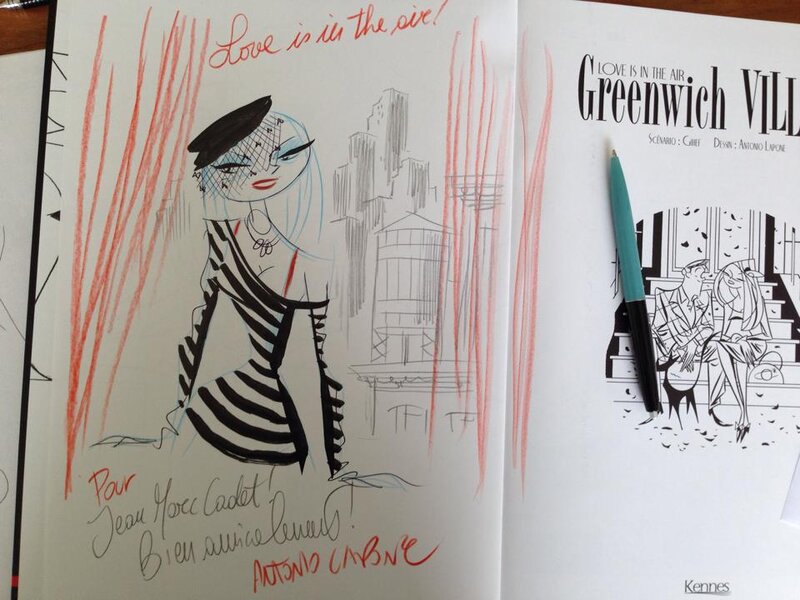 Love is in the air!
Pour
Jean Marc Cadet!
Bien amicalement!
ANTONIO LAPONE
LOVE IS IN THE AIR
Greenwich VILL
SCÉNARIO : GIHEF DESSIN : ANTONIO LAPONE
Kennes